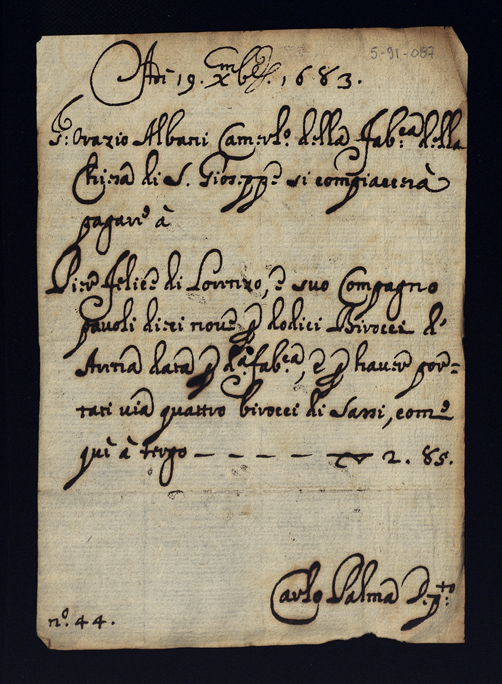 5-91-087
Adi 19. Xmbre. 1683.
Sr: Orazio Albani Camerlo. della Fab:ca della
Chiesa di S. Gioseppe si compiacerà
pagare à
Pier Felice di Lorenzo, e suo Compagno
pavoli dieci nove p dodici Birocci d'
data p da. fab:ca, e p haver por=
tati via quattro birocci di Sassi, come
quì à tergo — — — — — 2. 85.
Carlo Palma D.to:
no. 44.